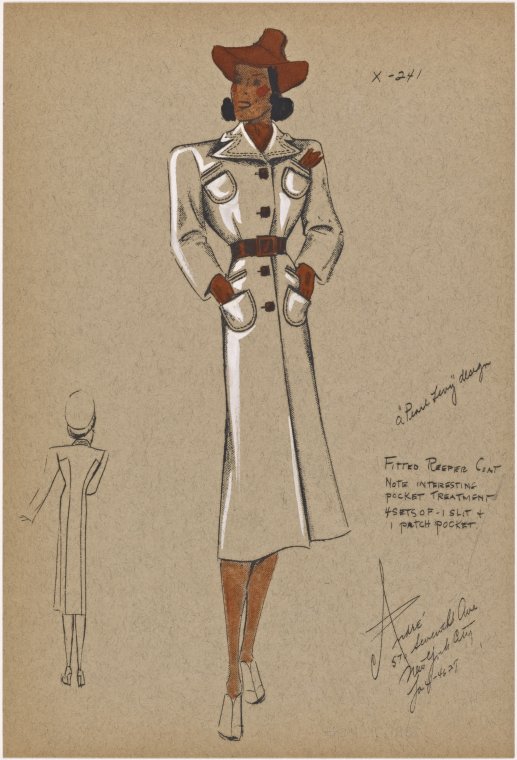 X-241
a "Pearl Levy" design
FITTED REEFER COAT
NOTE INTERESTING
POCKET TREATMENT
4 SETS OF - 1 SLIT +
1 PATCH POCKET
André
Seventh Ave
New York City